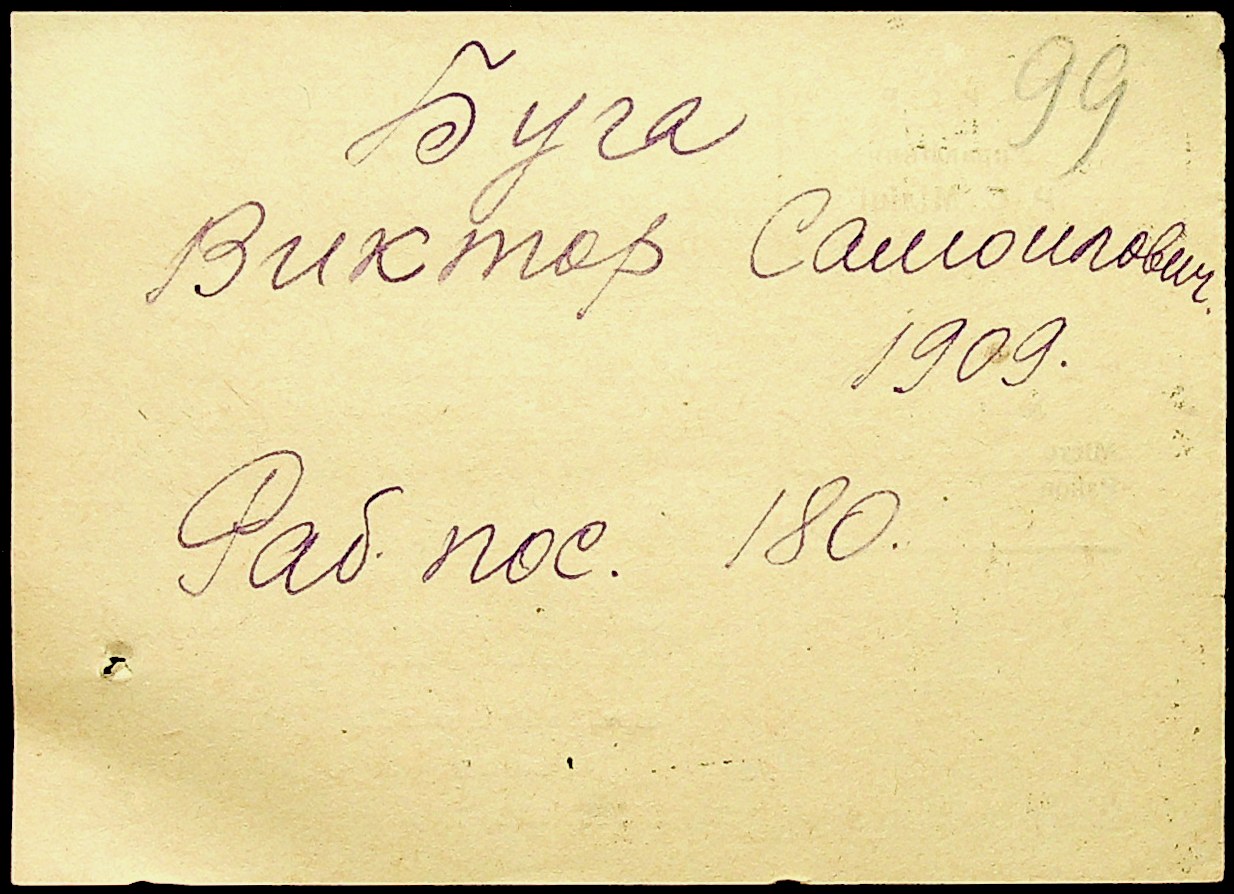 99
Буга
Виктор Самоилович.
1909.
Раб. пос. 180.